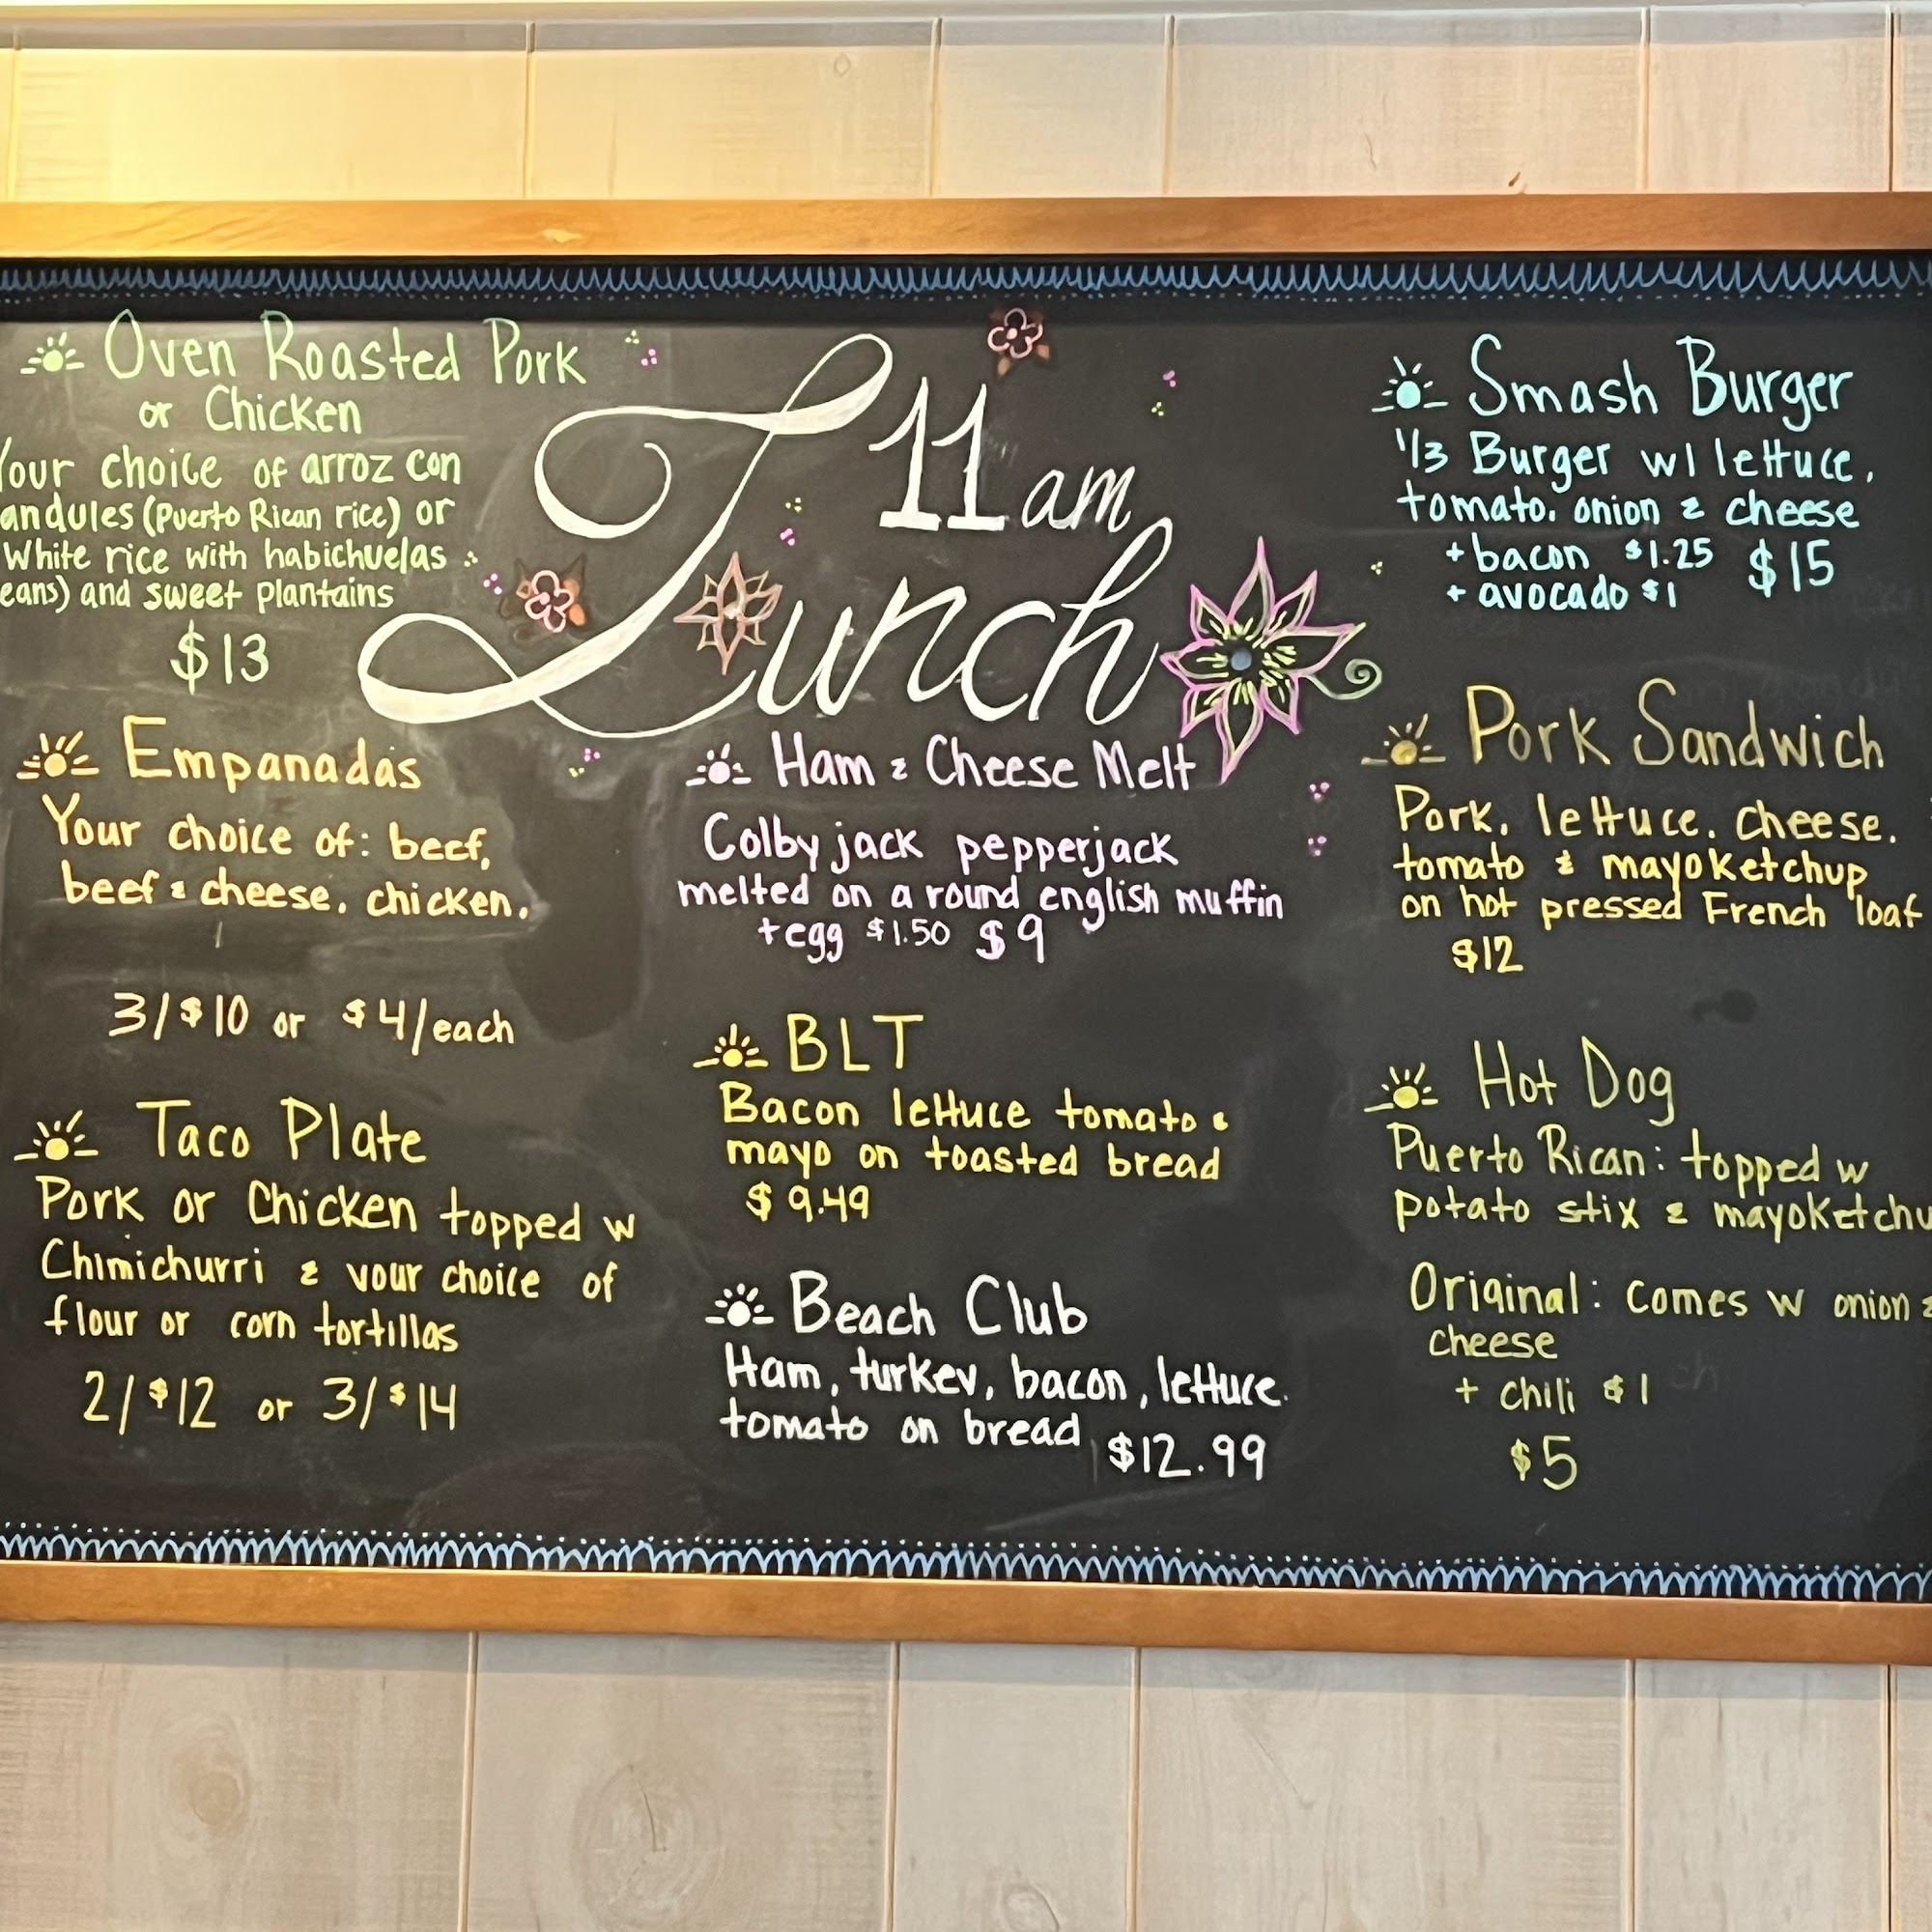 Oven Roasted Pork
or Chicken
Your choice of arroz con
andules (Puerto Rican rice) or
White rice with habichuelas
eans) and sweet plantains
$13
Empanadas
Your choice of: beef,
beef & cheese, chicken,
3/$10 or $4/each
Taco Plate
Pork or Chicken topped w
Chimichurri & your choice of
flour or corn tortillas
2/$12 or 3/$14
11 am
Lunch
Ham & Cheese Melt
Colby jack pepperjack
melted on a round english muffin
+egg $1.50 $9
BLT
Bacon lettuce tomato &
mayo on toasted bread
$9.49
Beach Club
Ham, turkey, bacon, lettuce,
tomato on bread $12.99
Smash Burger
1/3 Burger w/ lettuce,
tomato, onion & cheese
+ bacon $1.25 $15
+ avocado $1
Pork Sandwich
Pork, lettuce, cheese,
tomato & mayoketchup
on hot pressed French loaf
$12
Hot Dog
Puerto Rican: topped w
potato stix & mayoketchu
Original: comes w onion &
cheese
+ chili $1
$5